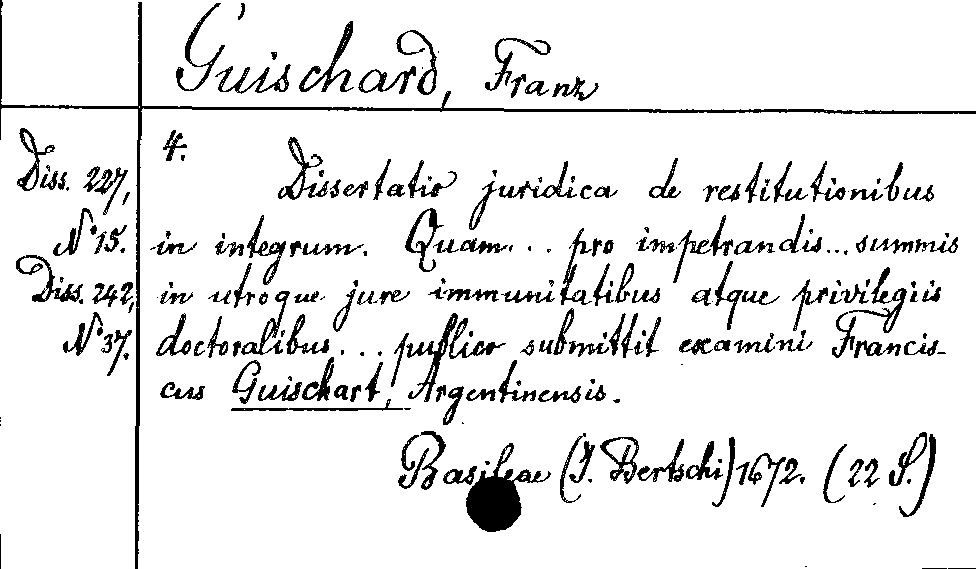 Guischard, Franz
4.
Diss. 227,
No 15.
Diss. 242,
No 37.
Dissertatio juridica de restitutionibus
in integrum. Quam... pro impetrandis... summis
in utroque jure immunitatibus atque privilegiis
doctoralibus... publico submittit examini Francis-
cus Guischart, Argentinensis.
Basileae (J. Bertschi) 1672. (22 S.)